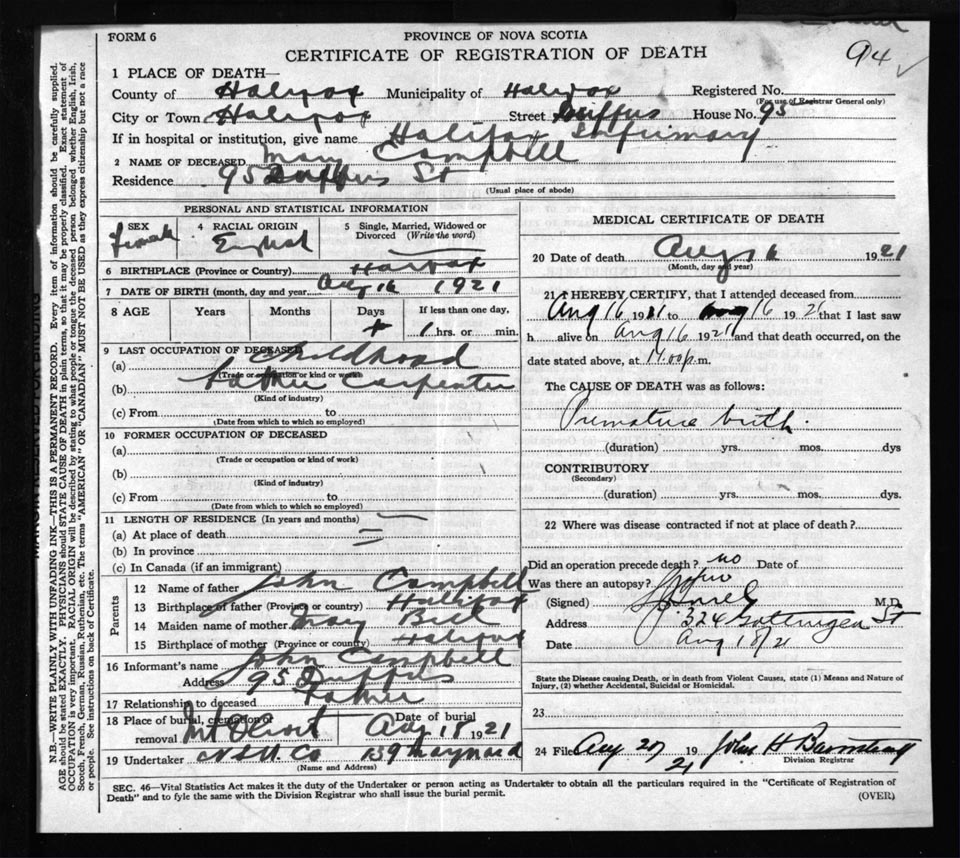 FORM 6
PROVINCE OF NOVA SCOTIA
CERTIFICATE OF REGISTRATION OF DEATH
94 ✓
1 PLACE OF DEATH—
County of Halifax Municipality of Halifax Registered No.
(For use of Registrar General only)
City or Town Halifax Street Duffus House No. 95
If in hospital or institution, give name Halifax Infirmary
2 NAME OF DECEASED Mary Campbell
Residence 95 Duffus St
(Usual place of abode)
PERSONAL AND STATISTICAL INFORMATION
3 SEX female
4 RACIAL ORIGIN English
5 Single, Married, Widowed or Divorced (Write the word)
6 BIRTHPLACE (Province or Country) Halifax
7 DATE OF BIRTH (month, day and year Aug 16 1921
8 AGE Years Months Days If less than one day,
1 hrs. or min.
9 LAST OCCUPATION OF DECEASED
(a) Childhood
(Trade or occupation or kind or work)
(b) Father Carpenter
(Kind of industry)
(c) From to
(Date from which to which so employed)
10 FORMER OCCUPATION OF DECEASED
(a)
(Trade or occupation or kind of work)
(b)
(Kind of industry)
(c) From to
(Date from which to which so employed)
11 LENGTH OF RESIDENCE (In years and months)
(a) At place of death
(b) In province
(c) In Canada (if an immigrant)
Parents
12 Name of father John Campbell
13 Birthplace of father (Province or country) Halifax
14 Maiden name of mother May Bell
15 Birthplace of mother (Province or country) Halifax
16 Informant's name John Campbell
Address 95 Duffus
17 Relationship to deceased Father
18 Place of burial, cremation or removal Mt Olivet Date of burial Aug 18 1921
19 Undertaker N.S.U. Co 139 Maynard
(Name and Address)
MEDICAL CERTIFICATE OF DEATH
20 Date of death Aug 16 1921
(Month, day and year)
21 I HEREBY CERTIFY, that I attended deceased from
Aug 16 1921 to Aug 16 1921 that I last saw
h alive on Aug 16 1921 and that death occurred, on the
date stated above, at 4.00 p.m.
The CAUSE OF DEATH was as follows:
Premature birth.
(duration) yrs. mos. dys
CONTRIBUTORY
(Secondary)
(duration) yrs. mos. dys.
22 Where was disease contracted if not at place of death?
Did an operation precede death? no Date of
Was there an autopsy?
(Signed) M.D.
Address 324 Gottingen St
Date Aug 18/21
State the Disease causing Death, or in death from Violent Causes, state (1) Means and Nature of
Injury, (2) whether Accidental, Suicidal or Homicidal.
23
24 File Aug 20 1921 John H Barnstead
Division Registrar
SEC. 46—Vital Statistics Act makes it the duty of the Undertaker or person acting as Undertaker to obtain all the particulars required in the "Certificate of Registration of
Death" and to fyle the same with the Division Registrar who shall issue the burial permit.
(OVER)
MARGIN RESERVED FOR BINDING
N.B.—WRITE PLAINLY WITH UNFADING INK—THIS IS A PERMANENT RECORD. Every item of information should be carefully supplied.
AGE should be stated EXACTLY. PHYSICIANS should STATE CAUSE OF DEATH in plain terms, so that it may be properly classified. Exact statement of
OCCUPATION is very important. RACIAL ORIGIN will be described by stating to what people or tongue the deceased person belonged whether English, Irish,
Scotch, French, German, Russian, Ruthenian, etc. The terms "AMERICAN" or "CANADIAN" MUST NOT BE USED as they express citizenship but not a race
or people. See instructions on back of Certificate.